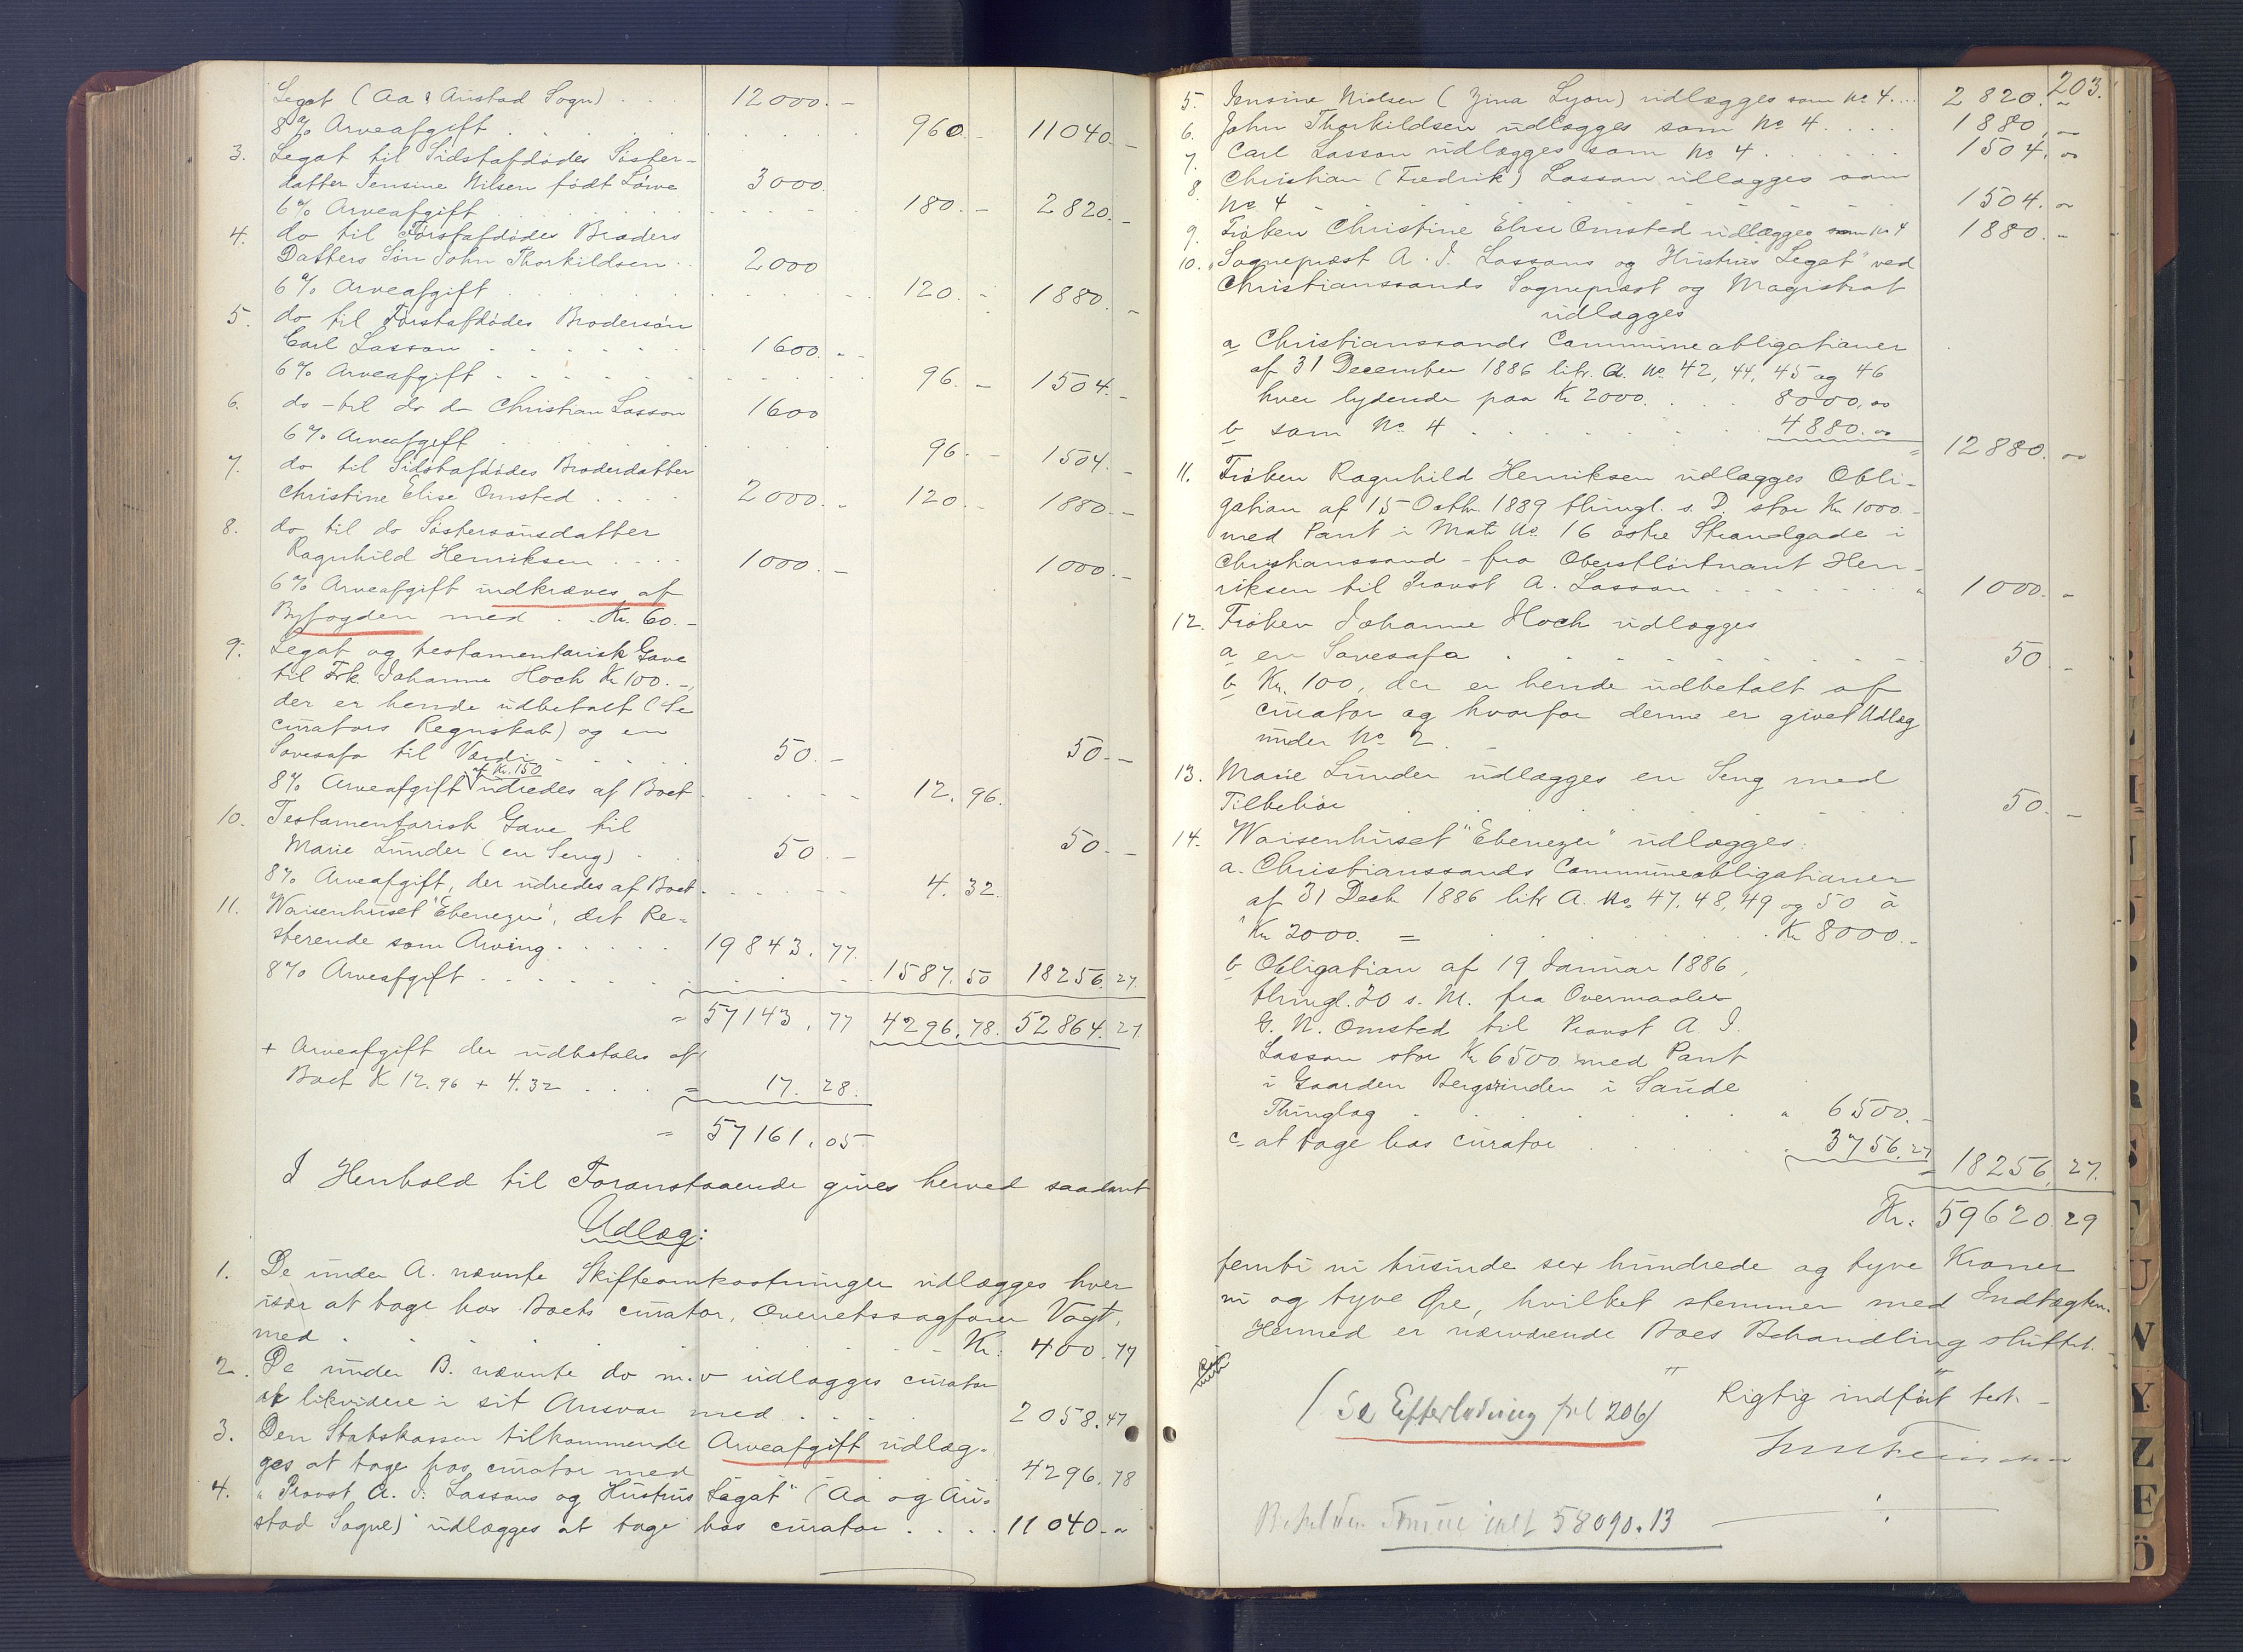 Legat (Aa & Austad Sogn) . . . 12000.-
8% Arveafgift . . . 960.- 11040.-
3. Legat til Sidstafdødes Søster-
datter Jensine Nilsen født Löwe 3000.
6% Arveafgift . . . 180.- 2820.-
4. do til Førstafdødes Broders
Datters Søn John Thorkildsen . . 2000
6% Arveafgift . . . 120.- 1880.-
5. do til Førstafdødes Brodersøn
Carl Lassen . . . 1600.-
6% Arveafgift . . . 96.- 1504.-
6. do - til do do Christian Lassen 1600
6% Arveafgift . . . 96.- 1504.-
7. do til Sidstafdødes Broderdatter
Christine Elise Omsted . . . 2000.- 120.- 1880.-
8. do til do Søstersønsdatter
Ragnhild Henriksen . . . 1000.- 1000.-
6% Arveafgift indkræves af
Byfogden med . . Kr. 60.-
9. Legat og testamentarisk Gave
til Frk. Johanne Hoch Kr 100.-,
der er hende udbetalt (Se
curators Regnskab) og en
Sovesofa til Værdi . . . 50.- 50.-
af Kr. 150
8% Arveafgift udredes af Boet . . . 12.96.
10. Testamentarisk Gave til
Marie Lunder (en Seng) . 50.- 50.-
8% Arveafgift, der udredes af Boet . . . 4.32.
11. Waisenhuset "Ebenezer", det Re-
sterende som Arving . . . 19843.77.
8% Arveafgift . . . 1587.50 18256.27.
= 57143.77 4296.78. 52864.27.
+ Arveafgift der udbetales af
Boet K 12.96 + 4.32 . . . = 17.28.
= 57161.05
I Henhold til Foranstaaende gives herved saadant
Udlæg:
1. De under A. nævnte Skifteomkostninger udlægges hver
især at tage hos Boets curator, Overretssagfører Vogt,
med . . . Kr. 400.77
2. De under B. nævnte do m.v udlægges curator
at likvidere i sit Ansvar med . . . 2058.47
3. Den Statskassen tilkommende Arveafgift udlæg-
ges at tage hos curator med 4296.78
4. "Provst A. J. Lassens og Hustrus Legat" (Aa og Au-
stad Sogne) udlægges at tage hos curator . . . 11040.-
203.
5. Jensine Nielsen (Zina Lyon) udlægges som No 4 . . . 2820.-
6. John Thorkildsen udlægges som No 4 . . . 1880.-
7. Carl Lassen udlægges som No 4 . . . 1504.-
8. Christian (Fredrik) Lassen udlægges som
No 4 . . . 1504.-
9. Frøken Christine Elise Omsted udlægges som No 4 1880.-
10. "Sogneprest A. J. Lassens og Hustrus Legat" ved
Christianssands Sogneprest og Magistrat
udlægges
a Christianssands Communeobligationer
af 31 December 1886 litr. A. No. 42, 44, 45 og 46
hver lydende paa Kr 2000. . . . 8000.00
b som No. 4 . . . 4880.00
= 12880.00
11. Frøken Ragnhild Henriksen udlægges Obli-
gation af 15 Octbr. 1889 thingl. s. D. stor Kr. 1000.-
med Pant i Matr No. 16 østre Strandgade i
Christianssand - fra Oberstløitnant Hen-
riksen til Provst A. Lassen . . . " 1000.-
12. Frøken Johanne Hoch udlægges
a en Sovesofa . . . 50.-
b Kr. 100, der er hende udbetalt af
curator og hvorfor denne er givet Udlæg
under No. 2.
13. Marie Lunder udlægges en Seng med
Tilbehør . . . 50.-
14. Waisenhuset "Ebenezer" udlægges:
a. Christianssands Communeobligationer
af 31 Decbr 1886 litr A. No. 47. 48, 49 og 50 à
Kr 2000. = . . . Kr 8000.-
b Obligation af 19 Januar 1886,
thingl. 20 s. M. fra Overmaaler
G. N. Omsted til Provst A. J.
Lassen stor Kr 6500 med Pant
i Gaarden Bergsvinden i Saude
Thinglag . . . " 6500.-
c. at tage hos curator . . . 3756.27
= 18256.27.
Kr. 59620.29
femti ni tusinde sex hundrede og tyve Kroner
ni og tyve Øre, hvilket stemmer med Indtægten.
Hermed er nærværende Boes Behandling sluttet.
Rigtig indført test. -
(Se Efterlodning fol 206)
58090.13